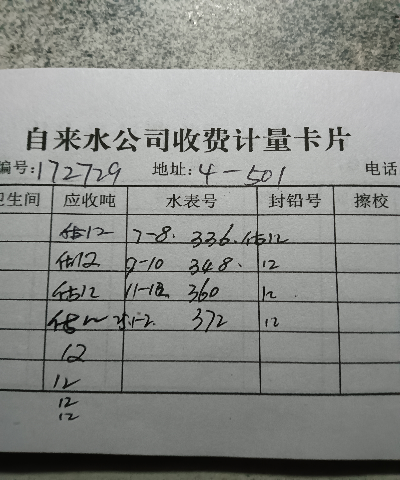 自来水公司收费计量卡片
编号:172729 地址:4-501 电话
卫生间 应收吨 水表号 封铅号 擦校
估12 7-8. 336.估12
估12 9-10 348. 12
估12 11-12 360 12.
估12 1-2 372 12
12
12
12
12